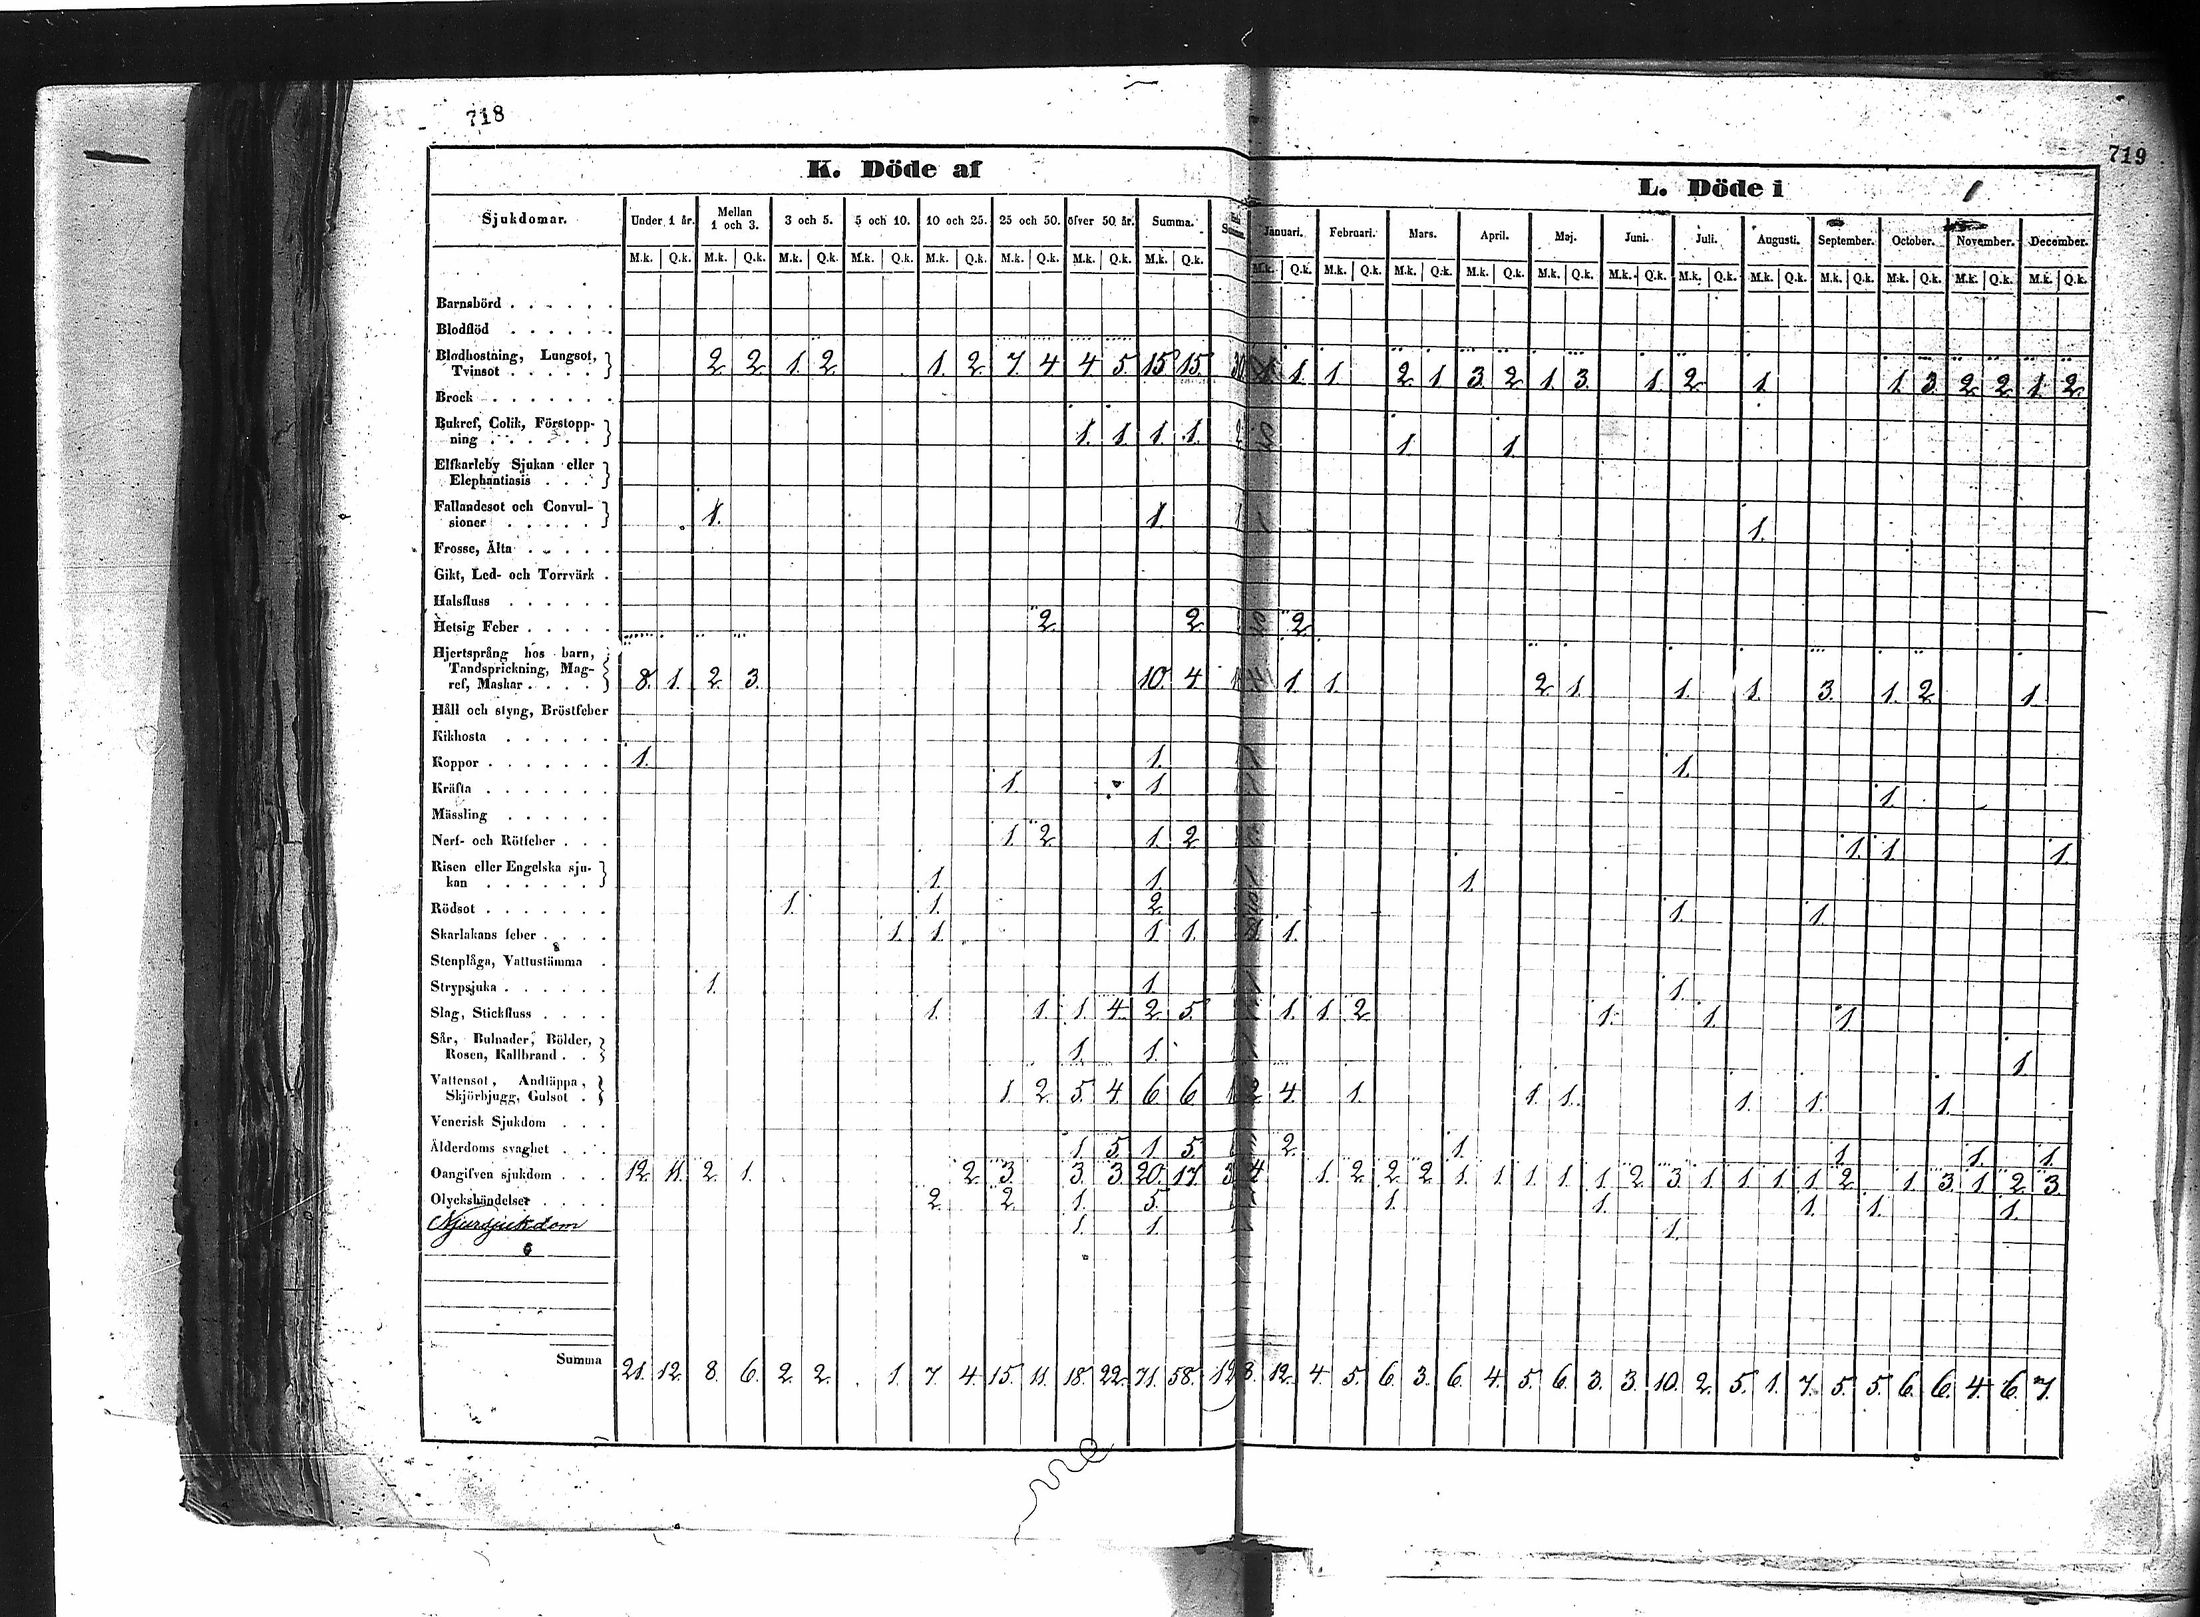 718
719
K. Döde af
L. Döde i
Sjukdomar. Under 1 år. Mellan 1 och 3. 3 och 5. 5 och 10. 10 och 25. 25 och 50. öfver 50 år. Summa.
Januari. Februari. Mars. April. Maj. Juni. Juli. Augusti. September. October. November. December.
M.k. Q.k. M.k. Q.k. M.k. Q.k. M.k. Q.k. M.k. Q.k. M.k. Q.k. M.k. Q.k. M.k. Q.k.
M.k. Q.k. M.k. Q.k. M.k. Q.k. M.k. Q.k. M.k. Q.k. M.k. Q.k. M.k. Q.k. M.k. Q.k. M.k. Q.k. M.k. Q.k. M.k. Q.k. M.k. Q.k.
Barnsbörd
Blodflöd
Blodhostning, Lungsot,
Tvinsot 2 2 1. 2 1. 2 7 4 4 5 15 15 30 1 1. 1 2 1 3 2 1. 3. 1. 2 1. 1. 3 2 2 1. 2
Brock
Bukref, Colik, Förstopp-
ning 1. 1 1. 1. 1. 1.
Elfkarleby Sjukan eller
Elephantiasis
Fallandesot och Convul-
sioner 1. 1. 1.
Frosse, Älta
Gikt, Led- och Torrvärk
Halsfluss
Hetsig Feber 2 2 2
Hjertsprång hos barn,
Tandsprickning, Mag-
ref, Maskar 8. 1. 2. 3. 10. 4. 1. 1. 2 1. 1. 1. 3. 1. 2 1.
Håll och styng, Bröstfeber
Kikhosta
Koppor 1. 1. 1.
Kräfta 1. 1 1.
Mässling
Nerf- och Rötfeber 1. 2 1. 2 1. 1. 1.
Risen eller Engelska sju-
kan 1. 1. 1.
Rödsot 1. 1. 2 1. 1.
Skarlakans feber 1. 1. 1. 1. 1. 1.
Stenplåga, Vattustämma
Strypsjuka 1. 1. 1.
Slag, Stickfluss 1. 1. 1. 4. 2. 5. 1. 1 2 1. 1. 1
Sår, Bulnader, Bölder,
Rosen, Kallbrand 1. 1. 1.
Vattensot, Andtäppa,
Skjörbjugg, Gulsot 1. 2. 5. 4. 6 6 2 4. 1. 1. 1. 1. 1. 1.
Venerisk Sjukdom
Ålderdoms svaghet 1. 5. 1. 5. 2. 1. 1. 1. 1.
Oangifven sjukdom 12. 11. 2. 1. 2. 3. 3. 3. 20. 17. 4. 1. 2. 2. 2 1. 1. 1. 1. 1. 2. 3. 1. 1. 1. 1. 2. 1. 3. 1. 2. 3.
Olyckshändelser 2. 2. 1. 5. 1. 1. 1. 1. 1.
Njursjukdom 1. 1. 1.
Summa 21. 12. 8. 6. 2 2. 1. 7. 4. 15. 11. 18. 22. 71. 58. 8. 12. 4. 5. 6. 3. 6. 4. 5. 6. 3. 3. 10. 2. 5. 1. 7. 5. 5. 6. 6. 4. 6. 7.